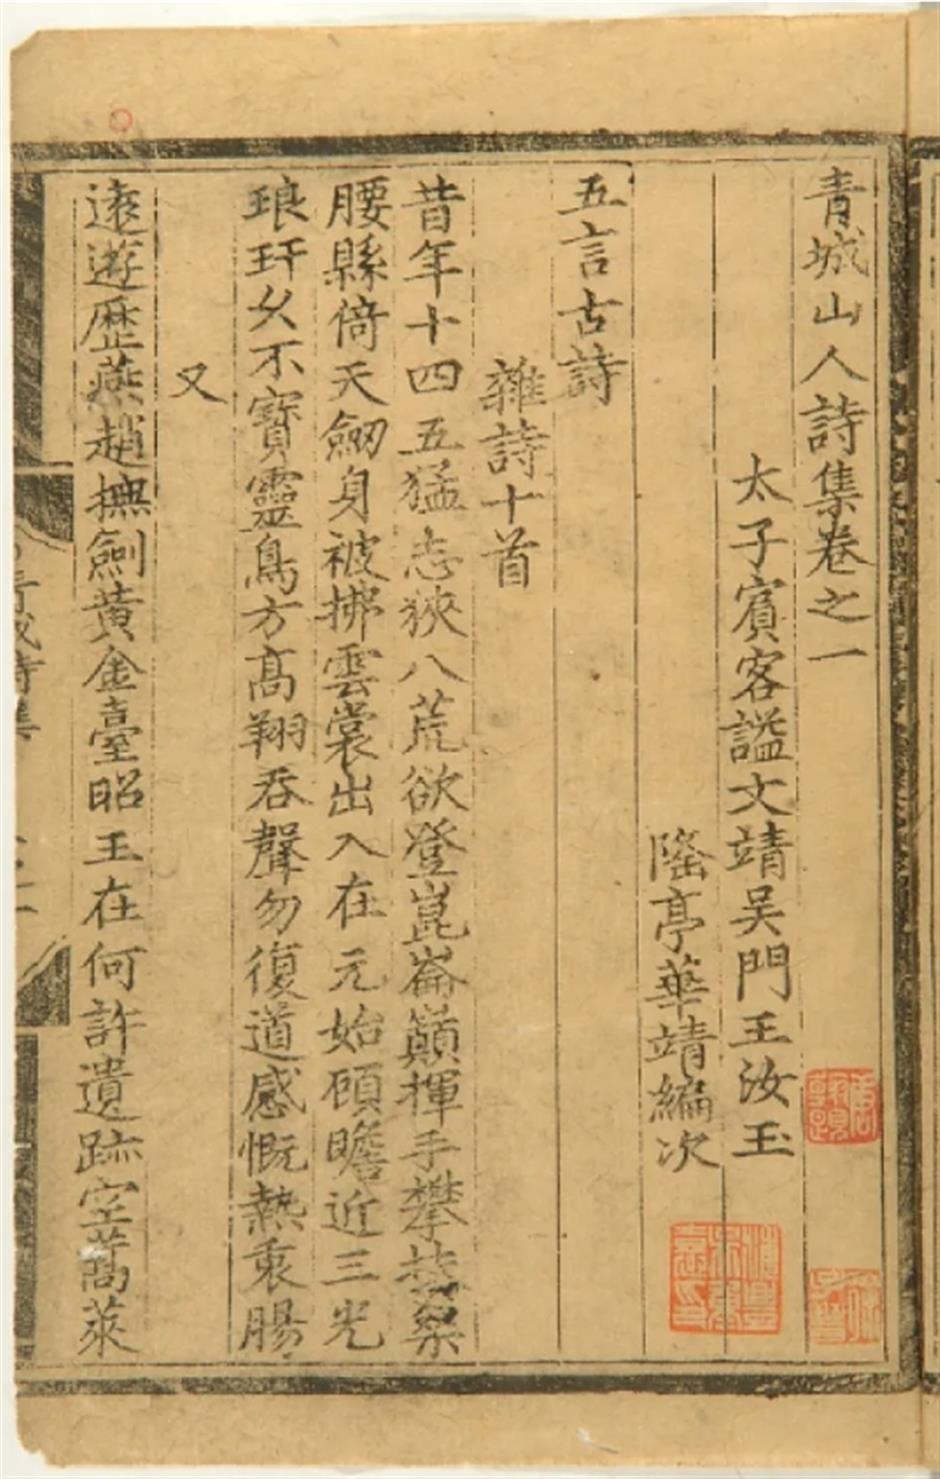 青城山人詩集卷之一
太子賓客謚文靖吴門王汝玉
隆亭華靖編次
五言古詩
雜詩十首
昔年十四五猛志狹八荒欲登崑崙巔揮手攀扶桑
腰縣倚天劒身被拂雲裳出入在元始頋瞻近三光
琅玕久不寶靈鳥方高翔吞聲勿復道感慨熱衷腸
又
遠遊歷燕趙撫劍黄金臺昭王在何許遺跡空蒿萊
青城詩集